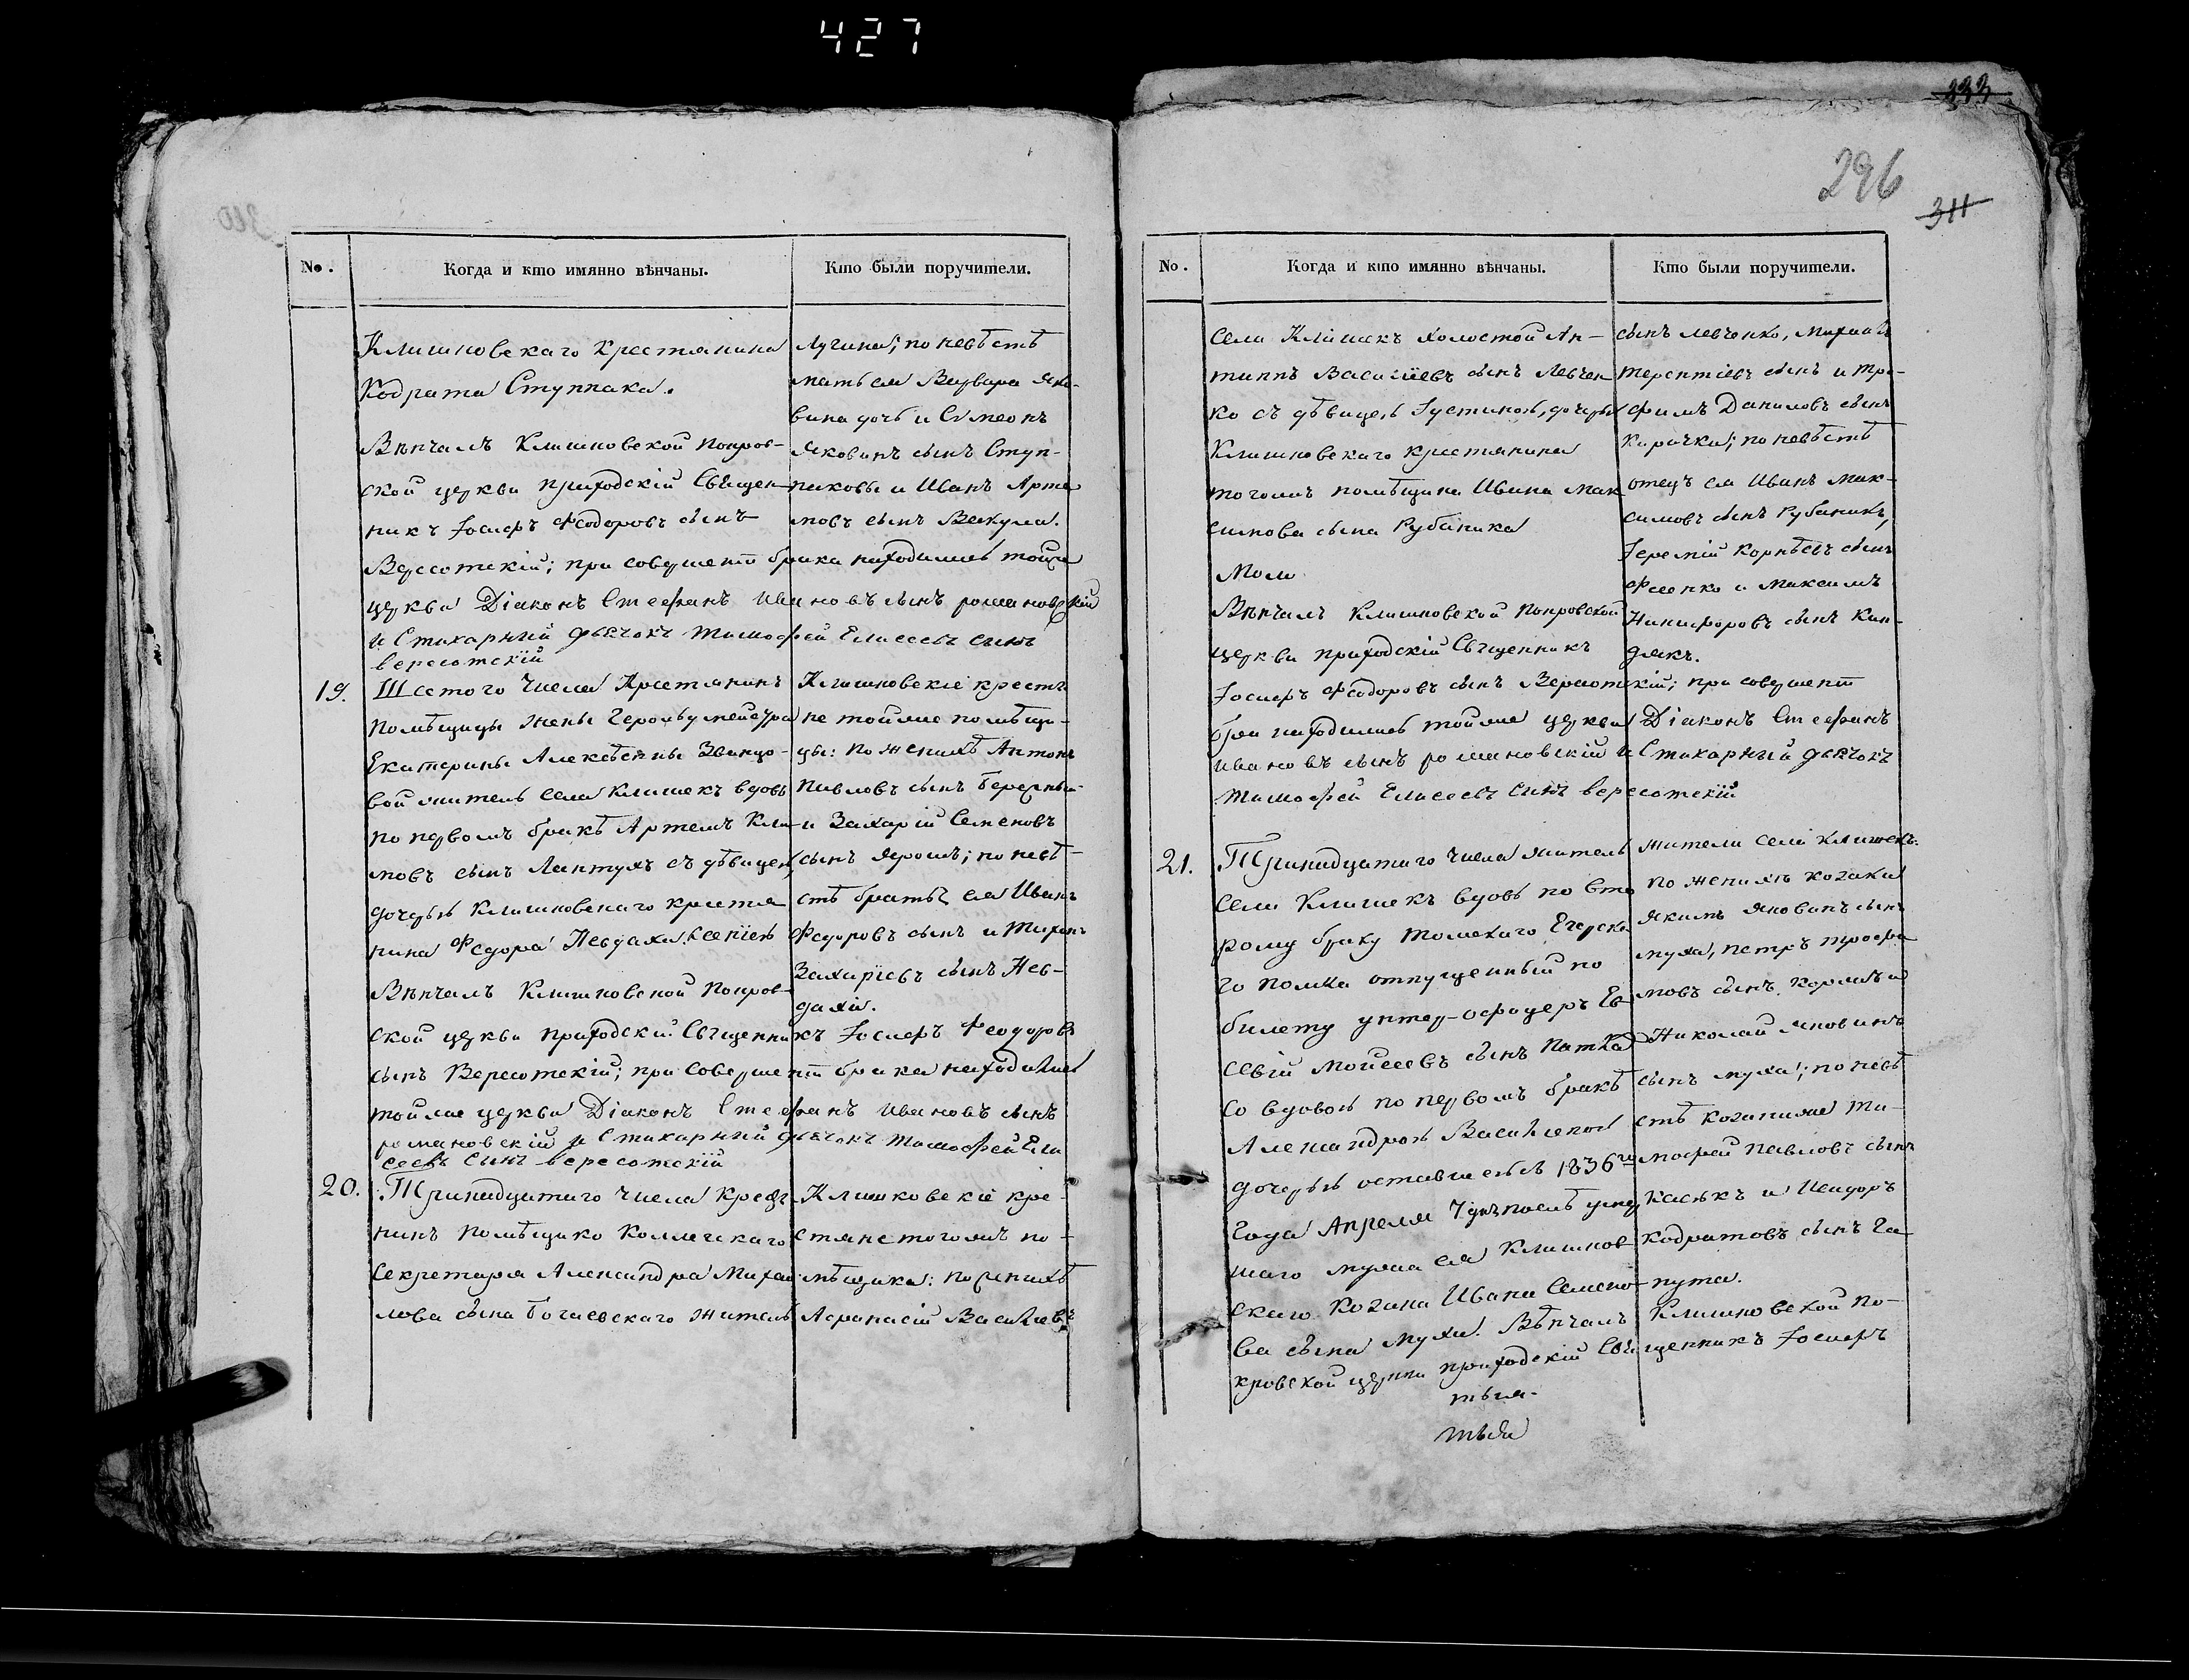 427
333
296
311
No.
Когда и кто имянно вѣнчаны.
Кто были поручители.
Клишковскаго крестянина
Кодрата Ступпака.
Вѣнчалъ Клишковской Покров-
ской церкви приходскій Священ-
никъ Іосифъ Феодоровъ сынъ
Вересотскій; при совершеніи брака находились тойже
церкви Діаконъ Стефанъ Ивановъ сынъ романовскій
и Стихарный дьячокъ Тимофей Елисеевъ сынъ
вересотскій
Лугина; по невѣстѣ
мать ея Варвара Яко-
вина дочь и Симеонъ
Яковинъ сынъ Ступ-
паковы и Иванъ Арте
мовъ сынъ Вакула.
19.
Шестого числа Крестянинъ
помѣщицы жены
Екатерины Алексѣевны Званцо-
вой житель села Клишекъ вдовъ
по первомъ бракѣ Артемъ Кли-
мовъ сынъ Лантухъ съ дѣвицею,
дочерью Клишковскаго крестя
нина Федора Невдахи Ксеніею
Вѣнчалъ Клишковской Покров-
ской церкви приходскій Священникъ Іосифъ Феодоровъ
сынъ Вересотскій; при совершеніи брака находились
тойже церкви Діаконъ Стефанъ Ивановъ сынъ
романовскій и Стихарный дьячокъ Тимофей Ели
сеевъ сынъ вересотскій
Клишковскіе крестя
не тойже помѣщи-
цы: по женихѣ Антонъ
Павловъ сынъ Березный
и Захарій Семеновъ
сынъ Ярошъ; по невѣ-
стѣ братъ ея Иванъ
Федоровъ сынъ и Тихонъ
Захаріевъ сынъ Нев-
дахи.
20.
Тринадцатаго числа крестя-
нинъ помѣщика Коллежскаго
Секретаря Александра Михаи
лова сына Богаевскаго житель
Клишковскіе кре-
стяне тогожъ по-
мѣщика: по женихѣ
Афанасій Васильевъ
No.
Когда и кто имянно вѣнчаны.
Кто были поручители.
села Клишекъ холостой Ан-
типпъ Васильевъ сынъ Левчен-
ко съ дѣвицею Іустиною, дочерью
Клишковскаго крестянина
тогожъ помѣщика Ивана Мак
симова сына Рубаника
Моли
Вѣнчалъ Клишковской Покровской
церкви приходскій Священникъ
Іосифъ Феодоровъ сынъ Вересотскій; при совершеніи
брака находились тойже церкви Діаконъ Стефанъ
Ивановъ сынъ романовскій и Стихарный дьячокъ
Тимофей Елисеевъ сынъ вересотскій
сынъ Левченко, Михаилъ
Терентіевъ сынъ и Тро-
фимъ Даниловъ сынъ
Кирички; по невѣстѣ
отецъ ея Иванъ Мак-
симовъ сынъ Рубаникъ,
Іеремій Корнѣевъ сынъ
Фесенко и Максимъ
Никифоровъ сынъ Кин-
дякъ.
21.
Тринадцатаго числа житель
села Клишекъ вдовъ по вто
рому браку Томскаго Егерска
го полка отпущенный по
билету унтер-офицеръ Ев
севій Мойсеевъ сынъ Патка
со вдовою по первомъ бракѣ
Александрою Васильевою
дочерью оставшеюся 1836го
года Апреля 7 дня послѣ умер
шаго мужа ея Клишков-
скаго козака Ивана Семено-
ва сына Мухи. Вѣнчалъ Клишковской По-
кровской церкви приходскій Священникъ Іосифъ
жители села Клишекъ:
по женихѣ козаки
Якимъ Яковинъ сынъ
муха, Петръ Трофи
мовъ сынъ и
Николай Яковинъ
сынъ муха; по невѣ
стѣ козакиже Ти-
мофей Павловъ сынъ
Касякъ и Исидоръ
Кодратовъ сынъ Га
пута.